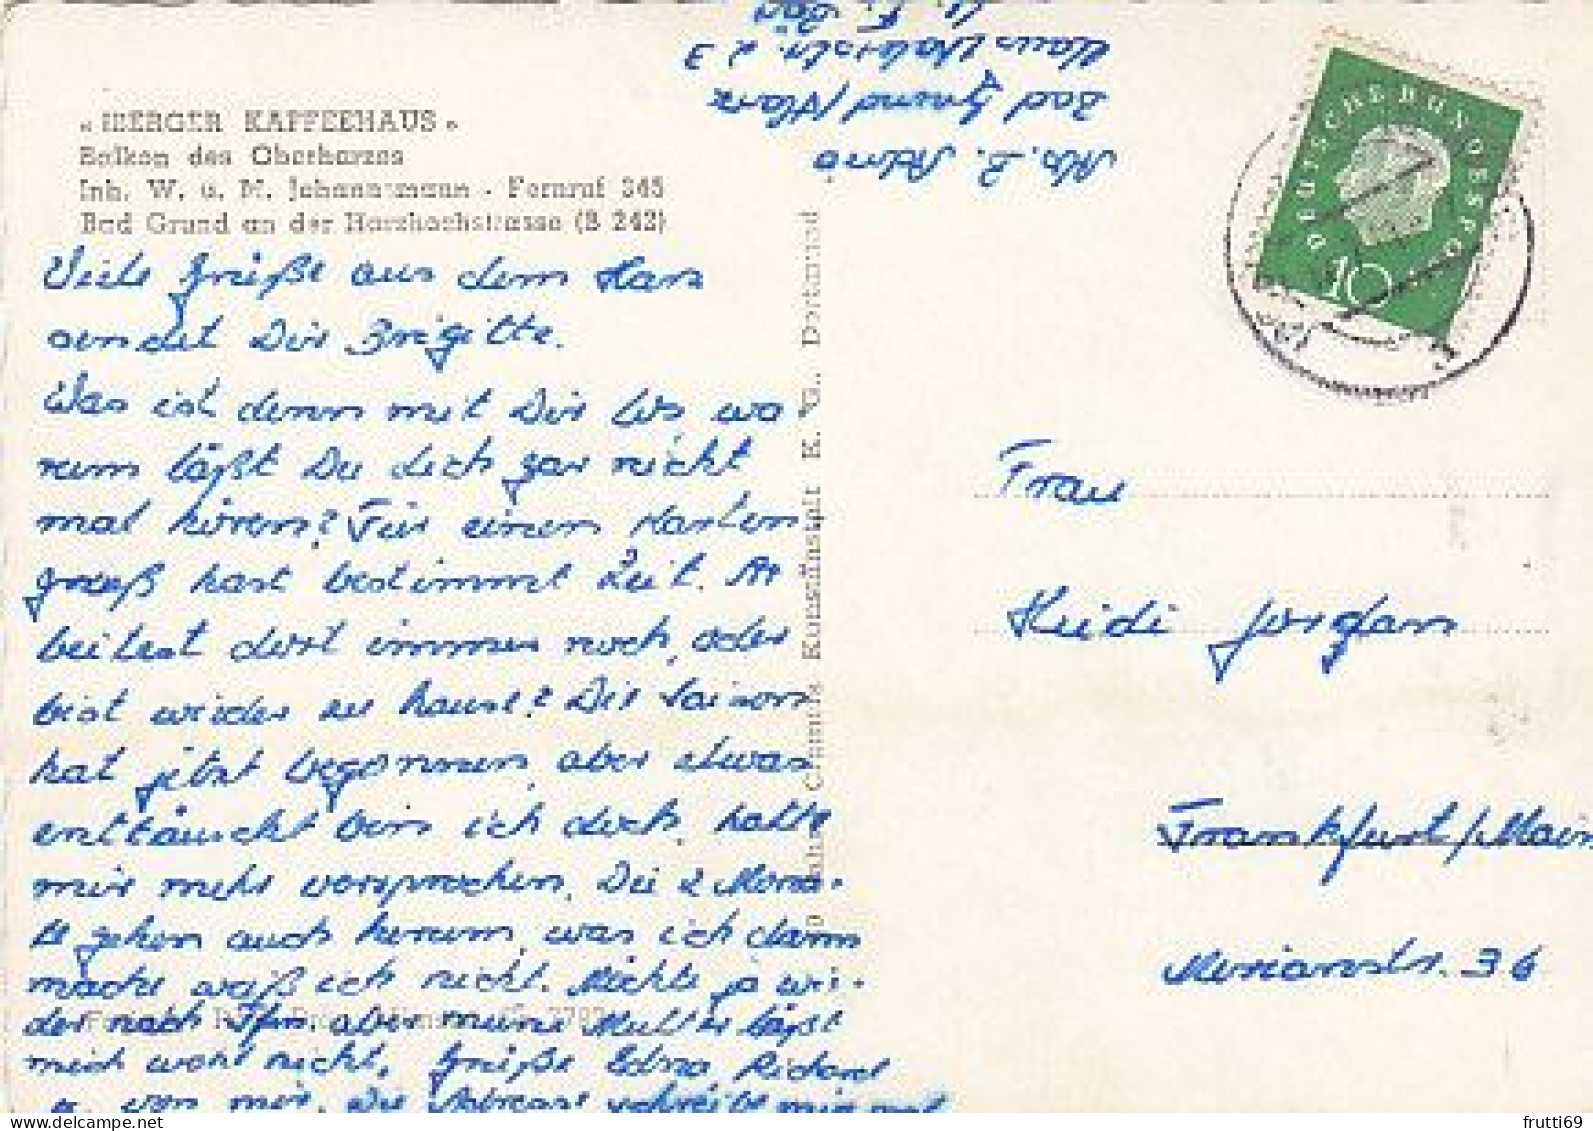 « IBERGER KAFFEEHAUS »
Balkon des Oberharzes
Inh. W. u. M. Johannsmann · Fernruf 345
Bad Grund an der Harzhochstrasse (B 242)
Viele Grüße aus dem Harz
sendet Dir Brigitte.
Was ist denn mit Dir los, wa
rum läßt Du dich gar nicht
mal hören? Für einen Karten
gruß hast bestimmt Zeit. Ar
beitest dort immer noch, oder
bist wieder zu hause? Die Saison
hat jetzt begonnen, aber etwas
enttäuscht bin ich doch, hatte
mir mehr versprochen. Die 2 Mona-
te gehen auch herum, was ich dann
mache weiß ich nicht. Möchte ja wie-
der nach aber meine Mutter läßt
mich wohl nicht. Grüße Edna Richard
u. von mir. Die Adresse schreibe mir mal
Bad Grund/Harz
23
Cramers Kunstanstalt K. G., Dortmund
DEUTSCHE BUNDESPOST
10
Frau
Heidi
Frankfurt/Main
Merianstr. 36
frutti69